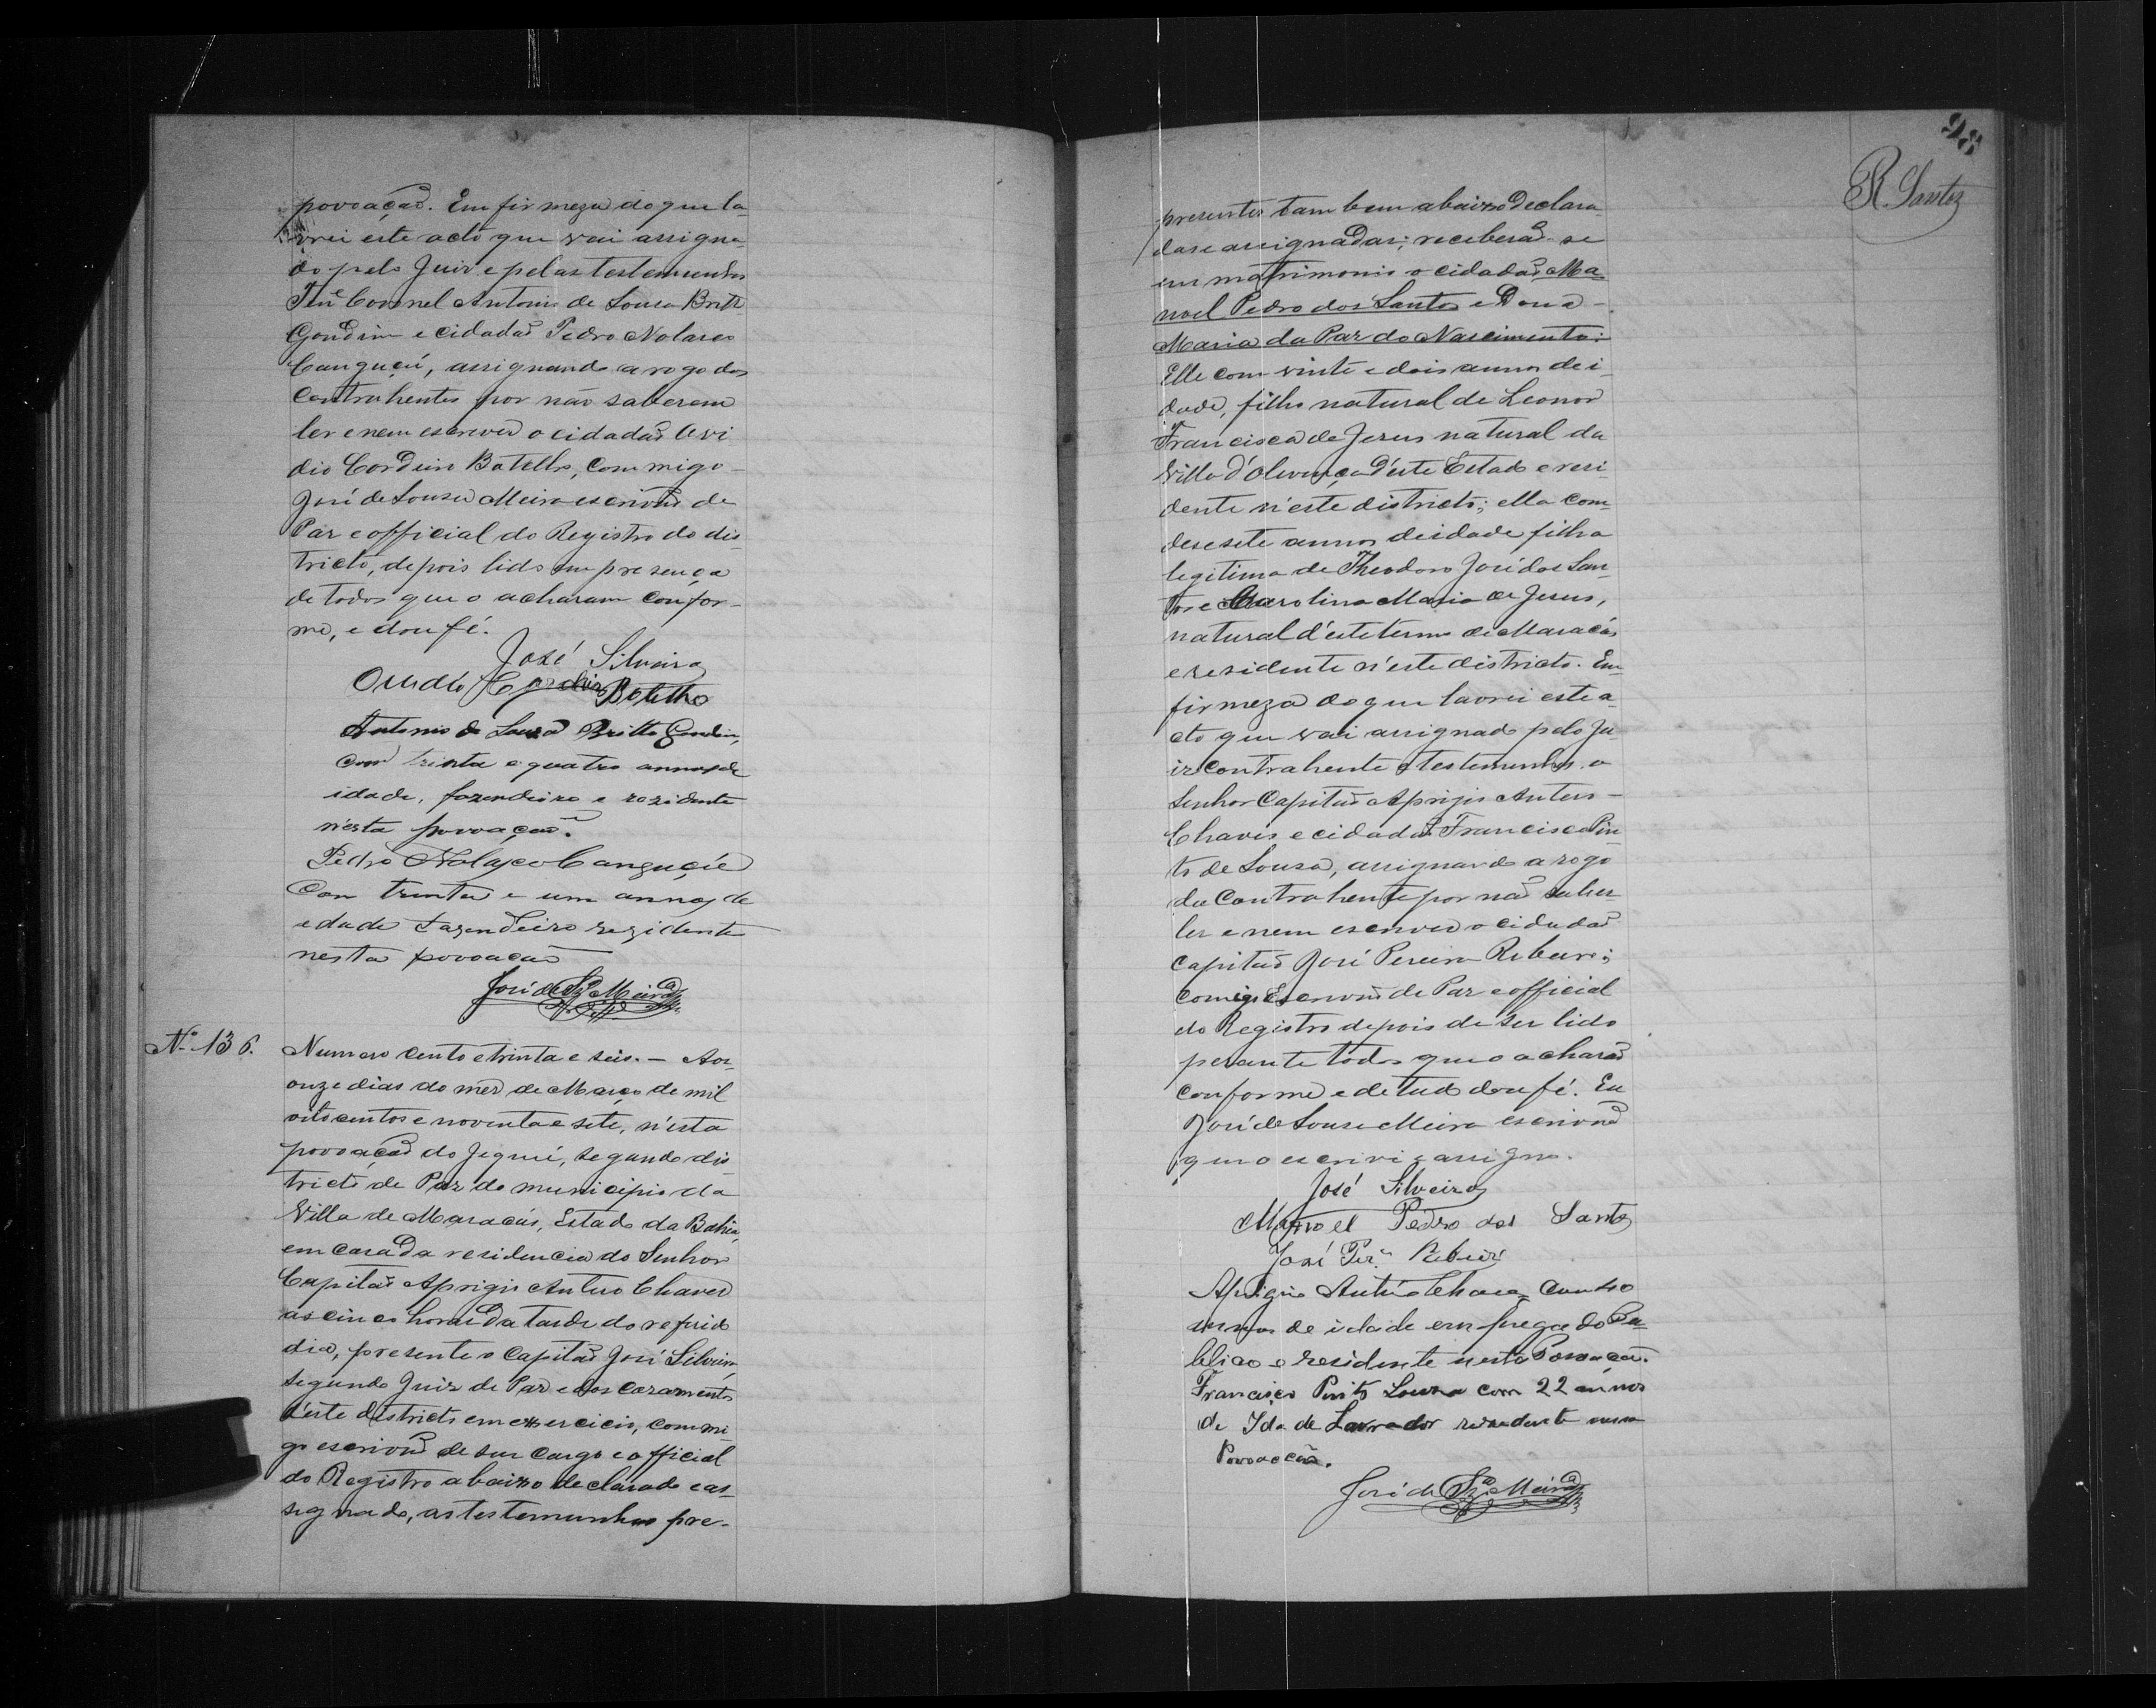 povoação. Em firmeza do que la-
vrei este acto que vai assigna-
do pelo Juiz e pelas testemunhas
Tne Coronel Antonio de Sousa Britto
Gondim e cidadão Pedro Nolasco
Canguçú, assignando a rogo dos
Contrahentes por não saberem
ler e nem escrever o cidadão Ovi
dio Cordeiro Botelho, commigo
José de Sousa Meira escrivão de
Paz e official do Registro do dis-
tricto, depois lido em presença
de todos que o acharam confor-
me, e dou fé.
José Silveira
Ovidio Cordeiro Botelho
Antonio de Souza Britto Gondim,
com trinta e quatro annos de
idade, fazendeiro e rezidente
n'esta povoação.
Pedro Nolasco Canguçú
Com trinta e um annos de
edade Fazendeiro rezidente
nesta povoacão
José de Sza Meira
Nº 136. Numero cento e trinta e seis. – Aos
onze dias do mez de Março de mil
oitocentos e noventa e sete, n'esta
povoação do Jequié, segundo dis-
tricto de Paz do municipio da
Villa de Maracás, Estado da Bahia,
em casa da residencia do Senhor
Capitão Aprigio Antero Chaves
as cinco horas da tarde do referido
dia, presente o Capitão José Silveira,
segundo Juiz de Paz e dos casamentos
d'este districto em exsercicio, commi-
go escrivão de seu cargo e official
do Registro abaixo declarado e as-
signado, as testemunhas pre-
98
R. Santos
presentes tambem abaixo declara-
das e assignadas; receberão-se
em matrimonio o cidadão Ma-
noel Pedro dos Santos e Dona
Maria da Paz do Nascimento:
Elle com vinte e dois annos de i-
dade, filho natural de Leonor
Francisca de Jesus natural da
Villa d'Olivença d'este Estado e resi-
dente n'este districto; ella com
desesete annos de idade filha
legitima de Theodoro José dos San-
tos e Carolina Maria de Jesus,
natural d'este termo de Maracás
e residente n'este districto. Em
firmeza do que lavrei este a-
cto que vai assignado pelo Ju-
iz Contrahente e testemunhas o
Senhor Capitão Aprigio Antero
Chaves e cidadão Francisco Pin-
to de Sousa, assignando a rogo
da Contrahente por não saber
ler e nem escrever o cidadão
Capitão José Pereira Ribeiro;
comigo Escrivão de Paz e official
do Registro depois de ser lido
perante todos que o acharão
conforme e de tudo dou fé. Eu
José de Sousa Meira escrivão
que o escrivi e assigno.
José Silveira
Manoel Pedro dos Santos
José Per.ª Ribeiro
Aprigio Antéro Chaves com 40
annos de idade empregado Pu-
blico e residente nesta Povoação.
Francisco Pinto Souza com 22 annos
de Idade Lavrador rezedente nesta
Povoacão.
José de Sza Meira